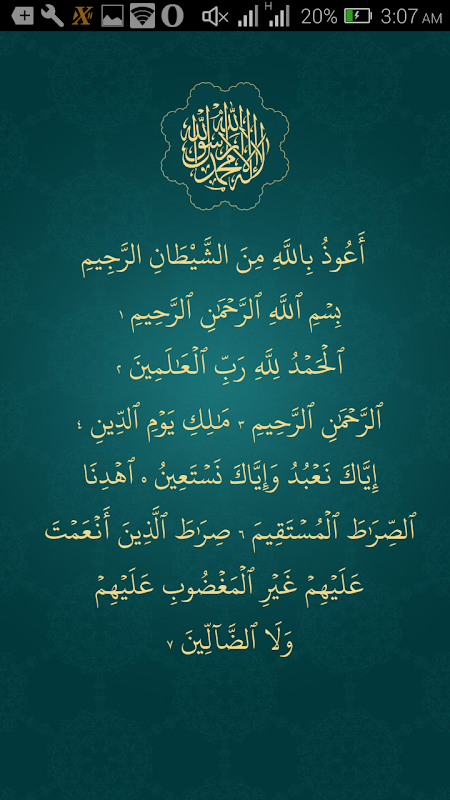 H 20% 3:07 AM
لا إله إلا الله محمد رسول الله
أَعُوذُ بِاللَّهِ مِنَ الشَّيْطَانِ الرَّجِيمِ
بِسْمِ ٱللَّهِ ٱلرَّحْمَٰنِ ٱلرَّحِيمِ ١
ٱلْحَمْدُ لِلَّهِ رَبِّ ٱلْعَٰلَمِينَ ٢
ٱلرَّحْمَٰنِ ٱلرَّحِيمِ ٣ مَٰلِكِ يَوْمِ ٱلدِّينِ ٤
إِيَّاكَ نَعْبُدُ وَإِيَّاكَ نَسْتَعِينُ ٥ ٱهْدِنَا
ٱلصِّرَٰطَ ٱلْمُسْتَقِيمَ ٦ صِرَٰطَ ٱلَّذِينَ أَنْعَمْتَ
عَلَيْهِمْ غَيْرِ ٱلْمَغْضُوبِ عَلَيْهِمْ
وَلَا ٱلضَّآلِّينَ ٧